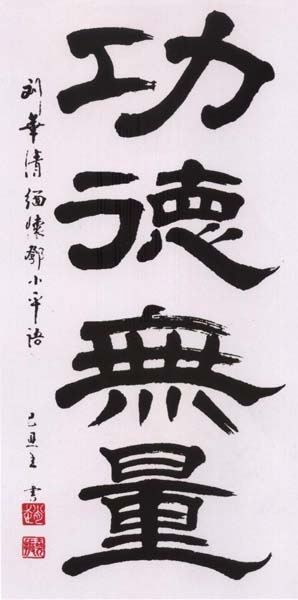 功德無量
刘華清緬懷鄧小平語
己丑
書